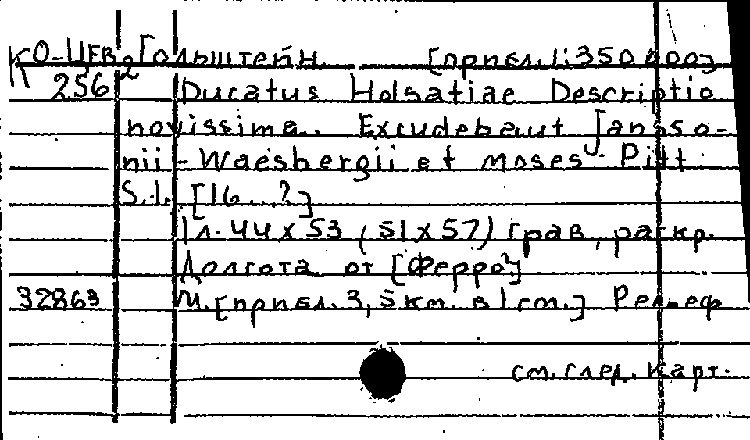 К О-ЦЕВ 2 Гольштейн. [прибл. 1:350 000]
256 Ducatus Holsatiae Descriptio
novissima. Excudebant Jansso-
nii-Waesbergii et Moses Pitt
S.l. [16..?]
1 л. 44 x 53 (51 x 57) грав., раскр.
Долгота от [Ферро?]
32863 М. [прибл. 3,5 км. в 1 см.] Рельеф
см. след. карт.